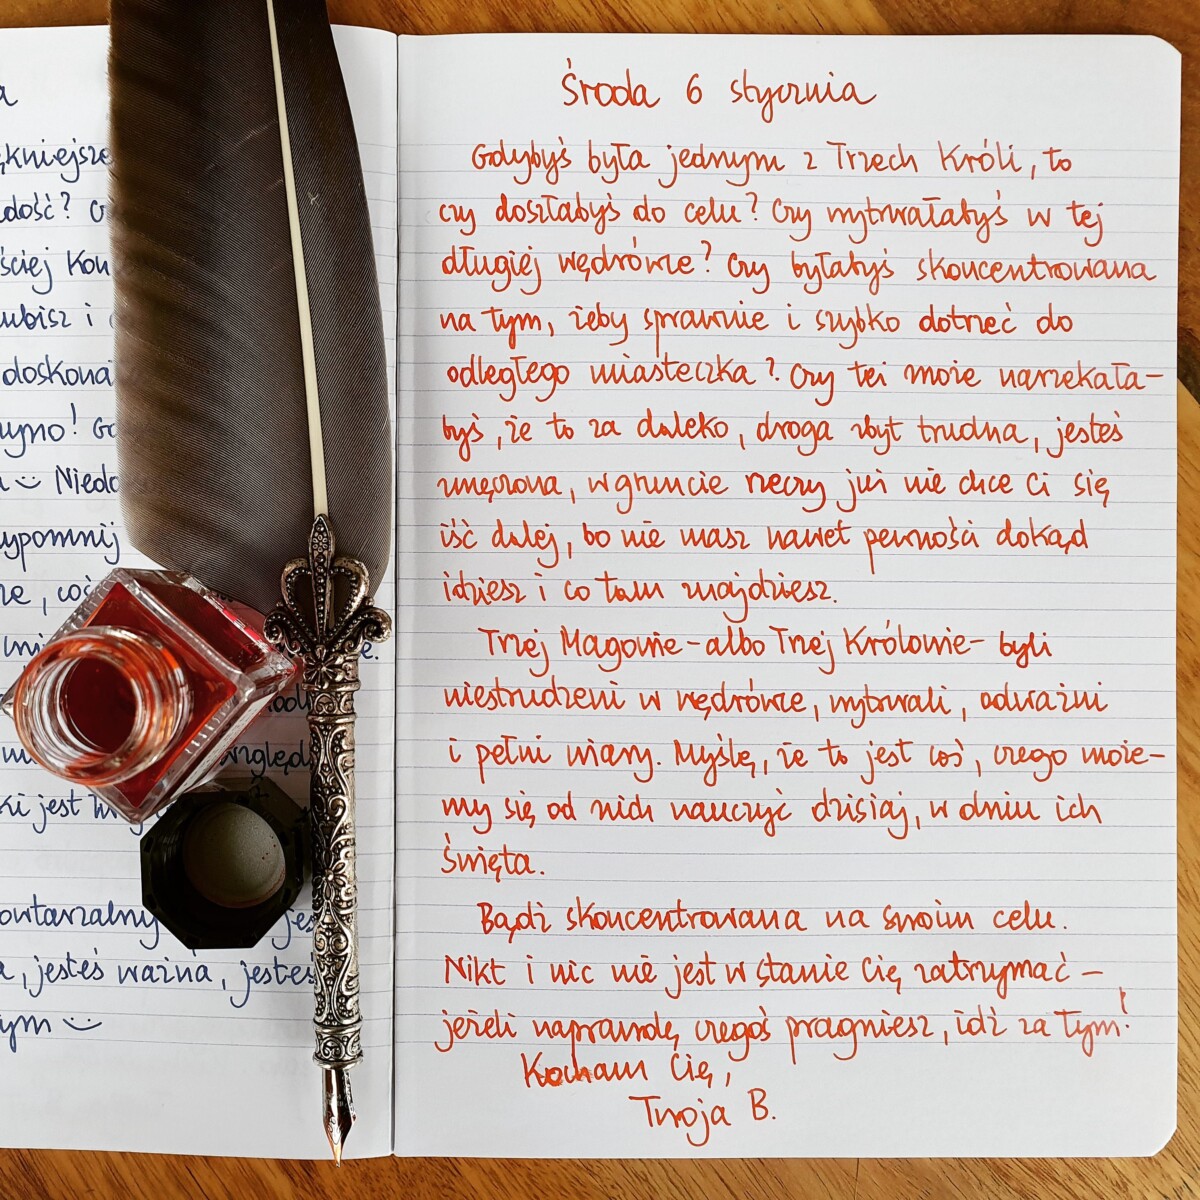 a
ękniejsze
dość? Cz
ściej Kon
ubisz i
doskona
Niedo
ypomnij
że, coś
e.
względ
ki jest
owtarzalny jes
a, jesteś ważna, jesteś
ym ☺
Środa 6 stycznia
Gdybyś była jednym z Trzech Króli, to
czy doszłabyś do celu? Czy wytrwałabyś w tej
długiej wędrówce? Czy byłabyś skoncentrowana
na tym, żeby sprawnie i szybko dotrzeć do
odległego miasteczka? Czy też może narzekała-
byś, że to za daleko, droga zbyt trudna, jesteś
zmęczona, w gruncie rzeczy już nie chce Ci się
iść dalej, bo nie masz nawet pewności dokąd
idziesz i co tam znajdziesz.
Trzej Magowie - albo Trzej Królowie - byli
niestrudzeni w wędrówce, wytrwali, odważni
i pełni wiary. Myślę, że to jest coś, czego może-
my się od nich nauczyć dzisiaj, w dniu ich
Święta.
Bądź skoncentrowana na swoim celu.
Nikt i nic nie jest w stanie Cię zatrzymać -
jeżeli naprawdę czegoś pragniesz, idź za tym!
Kocham Cię,
Twoja B.